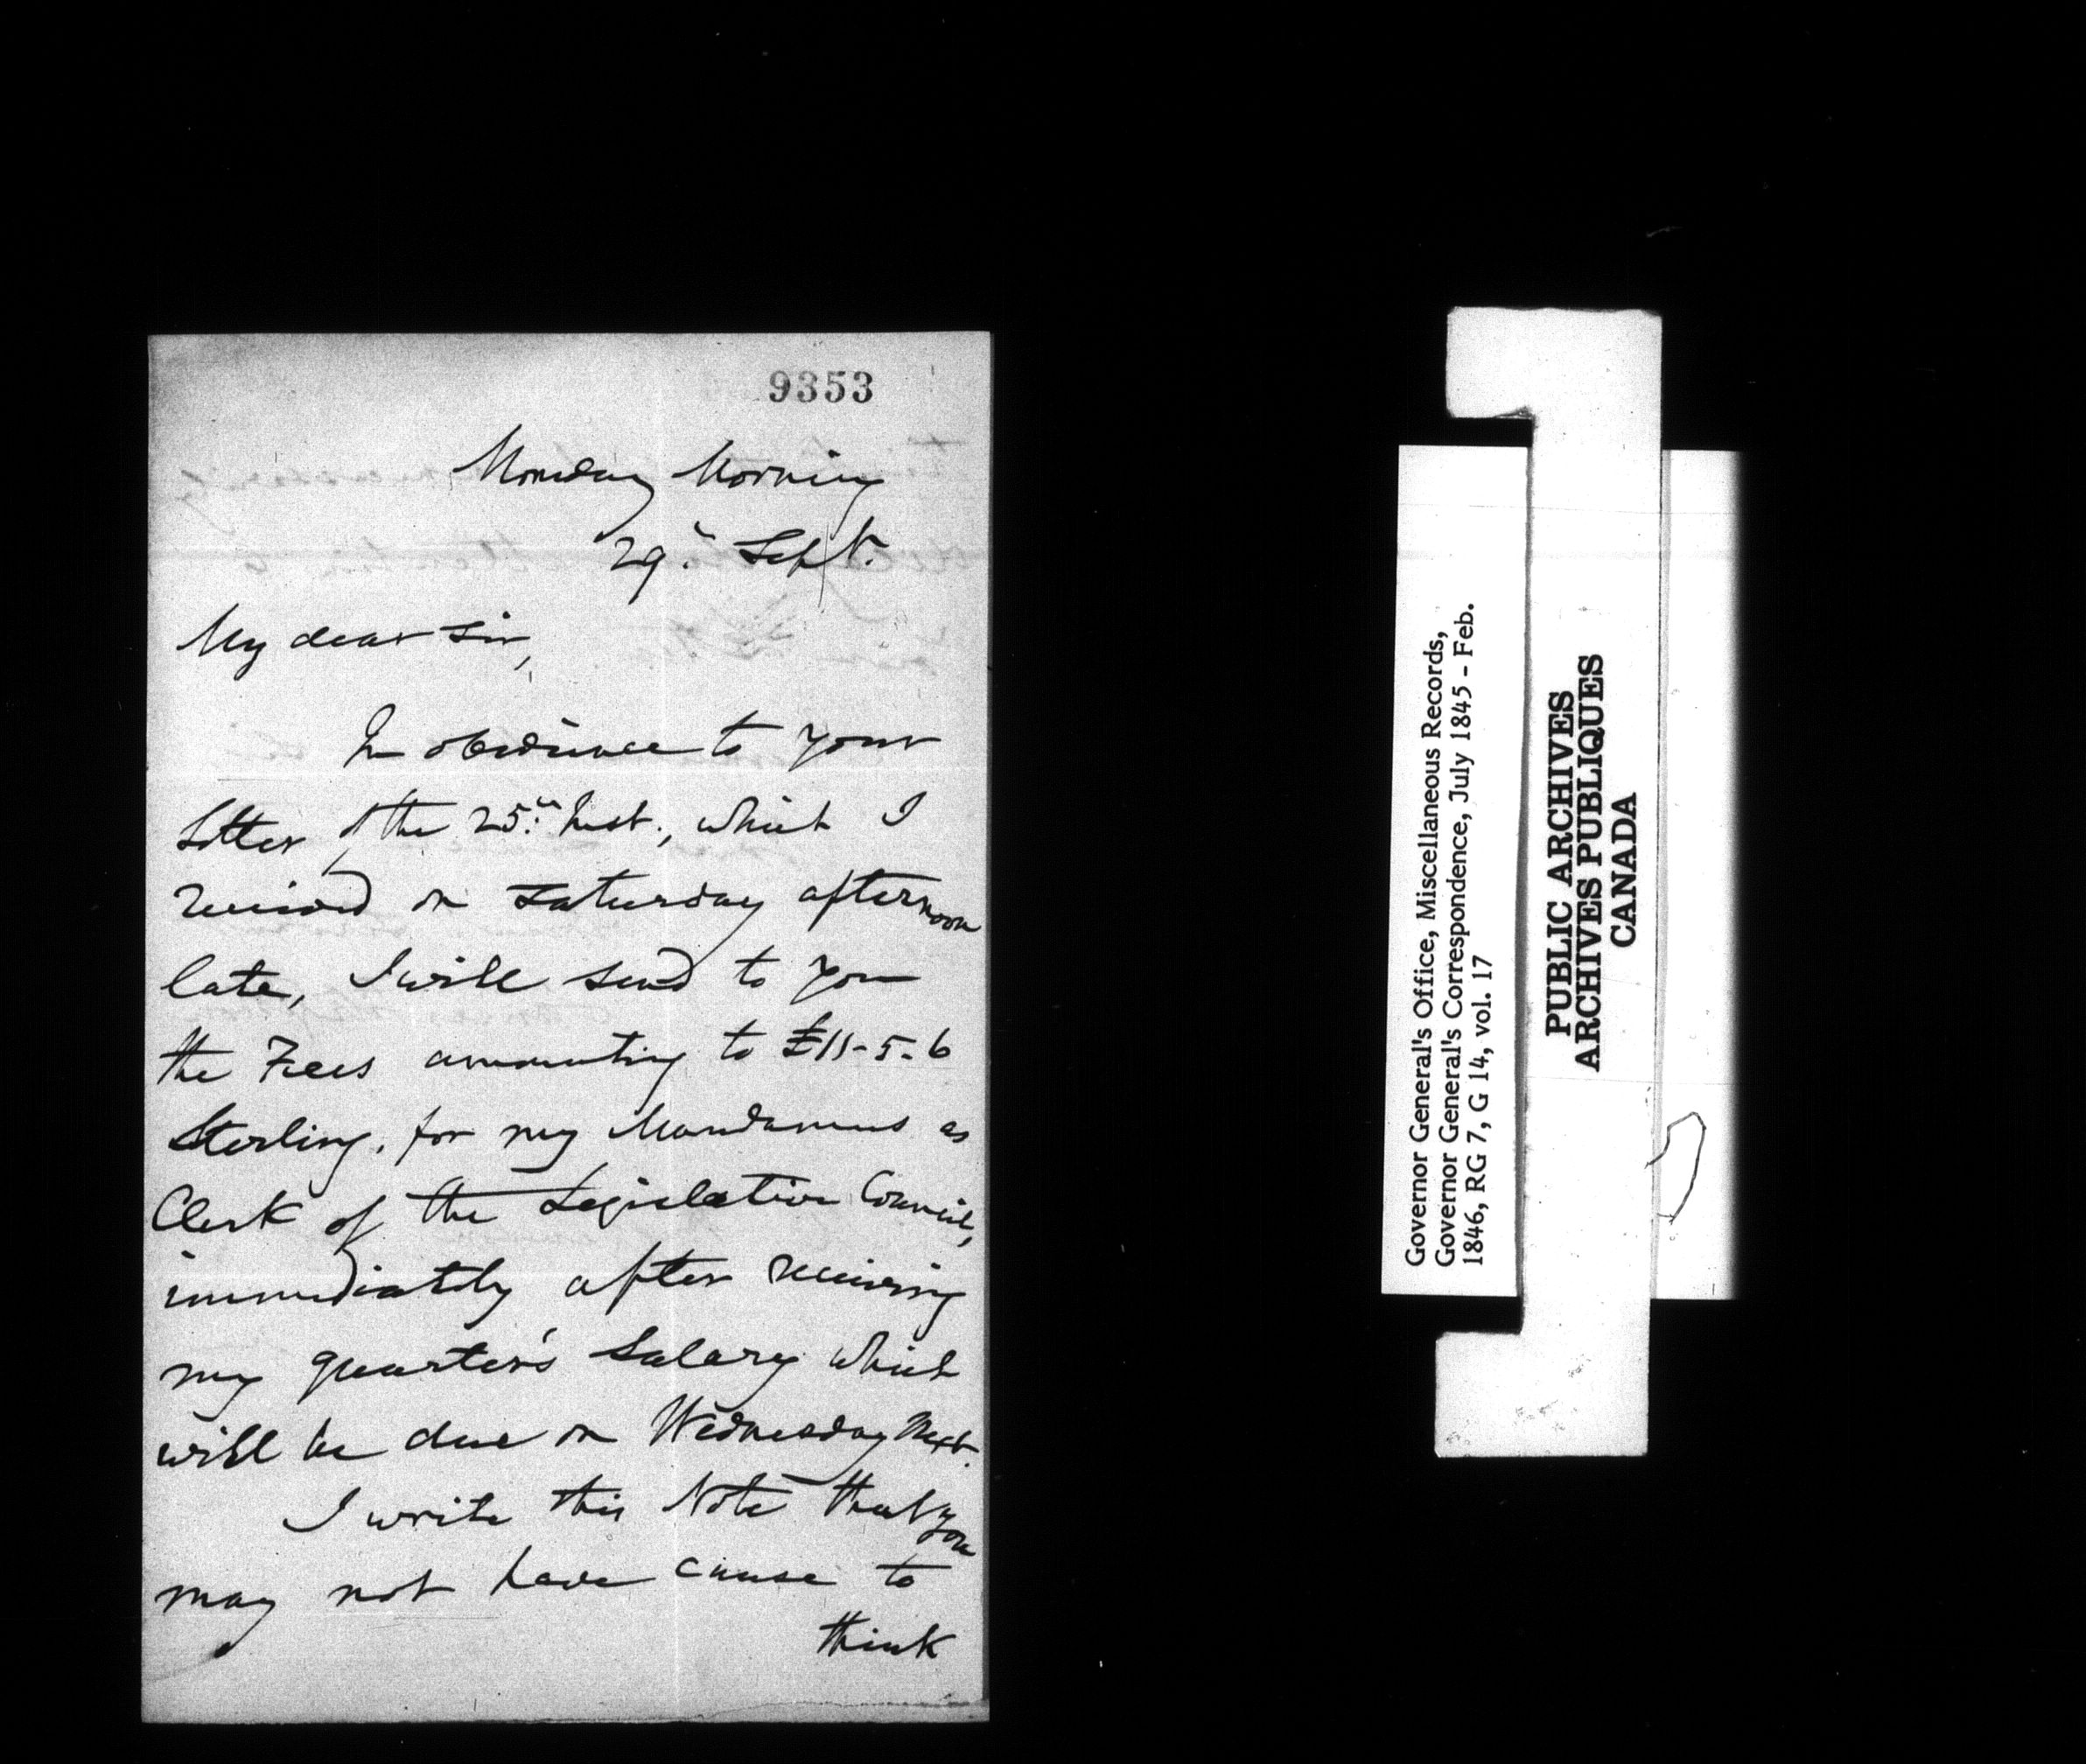 9353
Monday Morning
29th Sept.
My dear Sir,
In obedience to your
Letter of the 25th Inst., which I
received on Saturday afternoon
late, I will send to you
the Fees amounting to £11-5-6
Sterling, for my Mandamus as
Clerk of the Legislative Council,
immediately after receiving
my quarter's Salary which
will be due on Wednesday Next.
I write this Note that you
may not have cause to
think
Governor General's Office, Miscellaneous Records,
Governor General's Correspondence, July 1845 - Feb.
1846, RG 7, G 14, vol. 17
PUBLIC ARCHIVES
ARCHIVES PUBLIQUES
CANADA